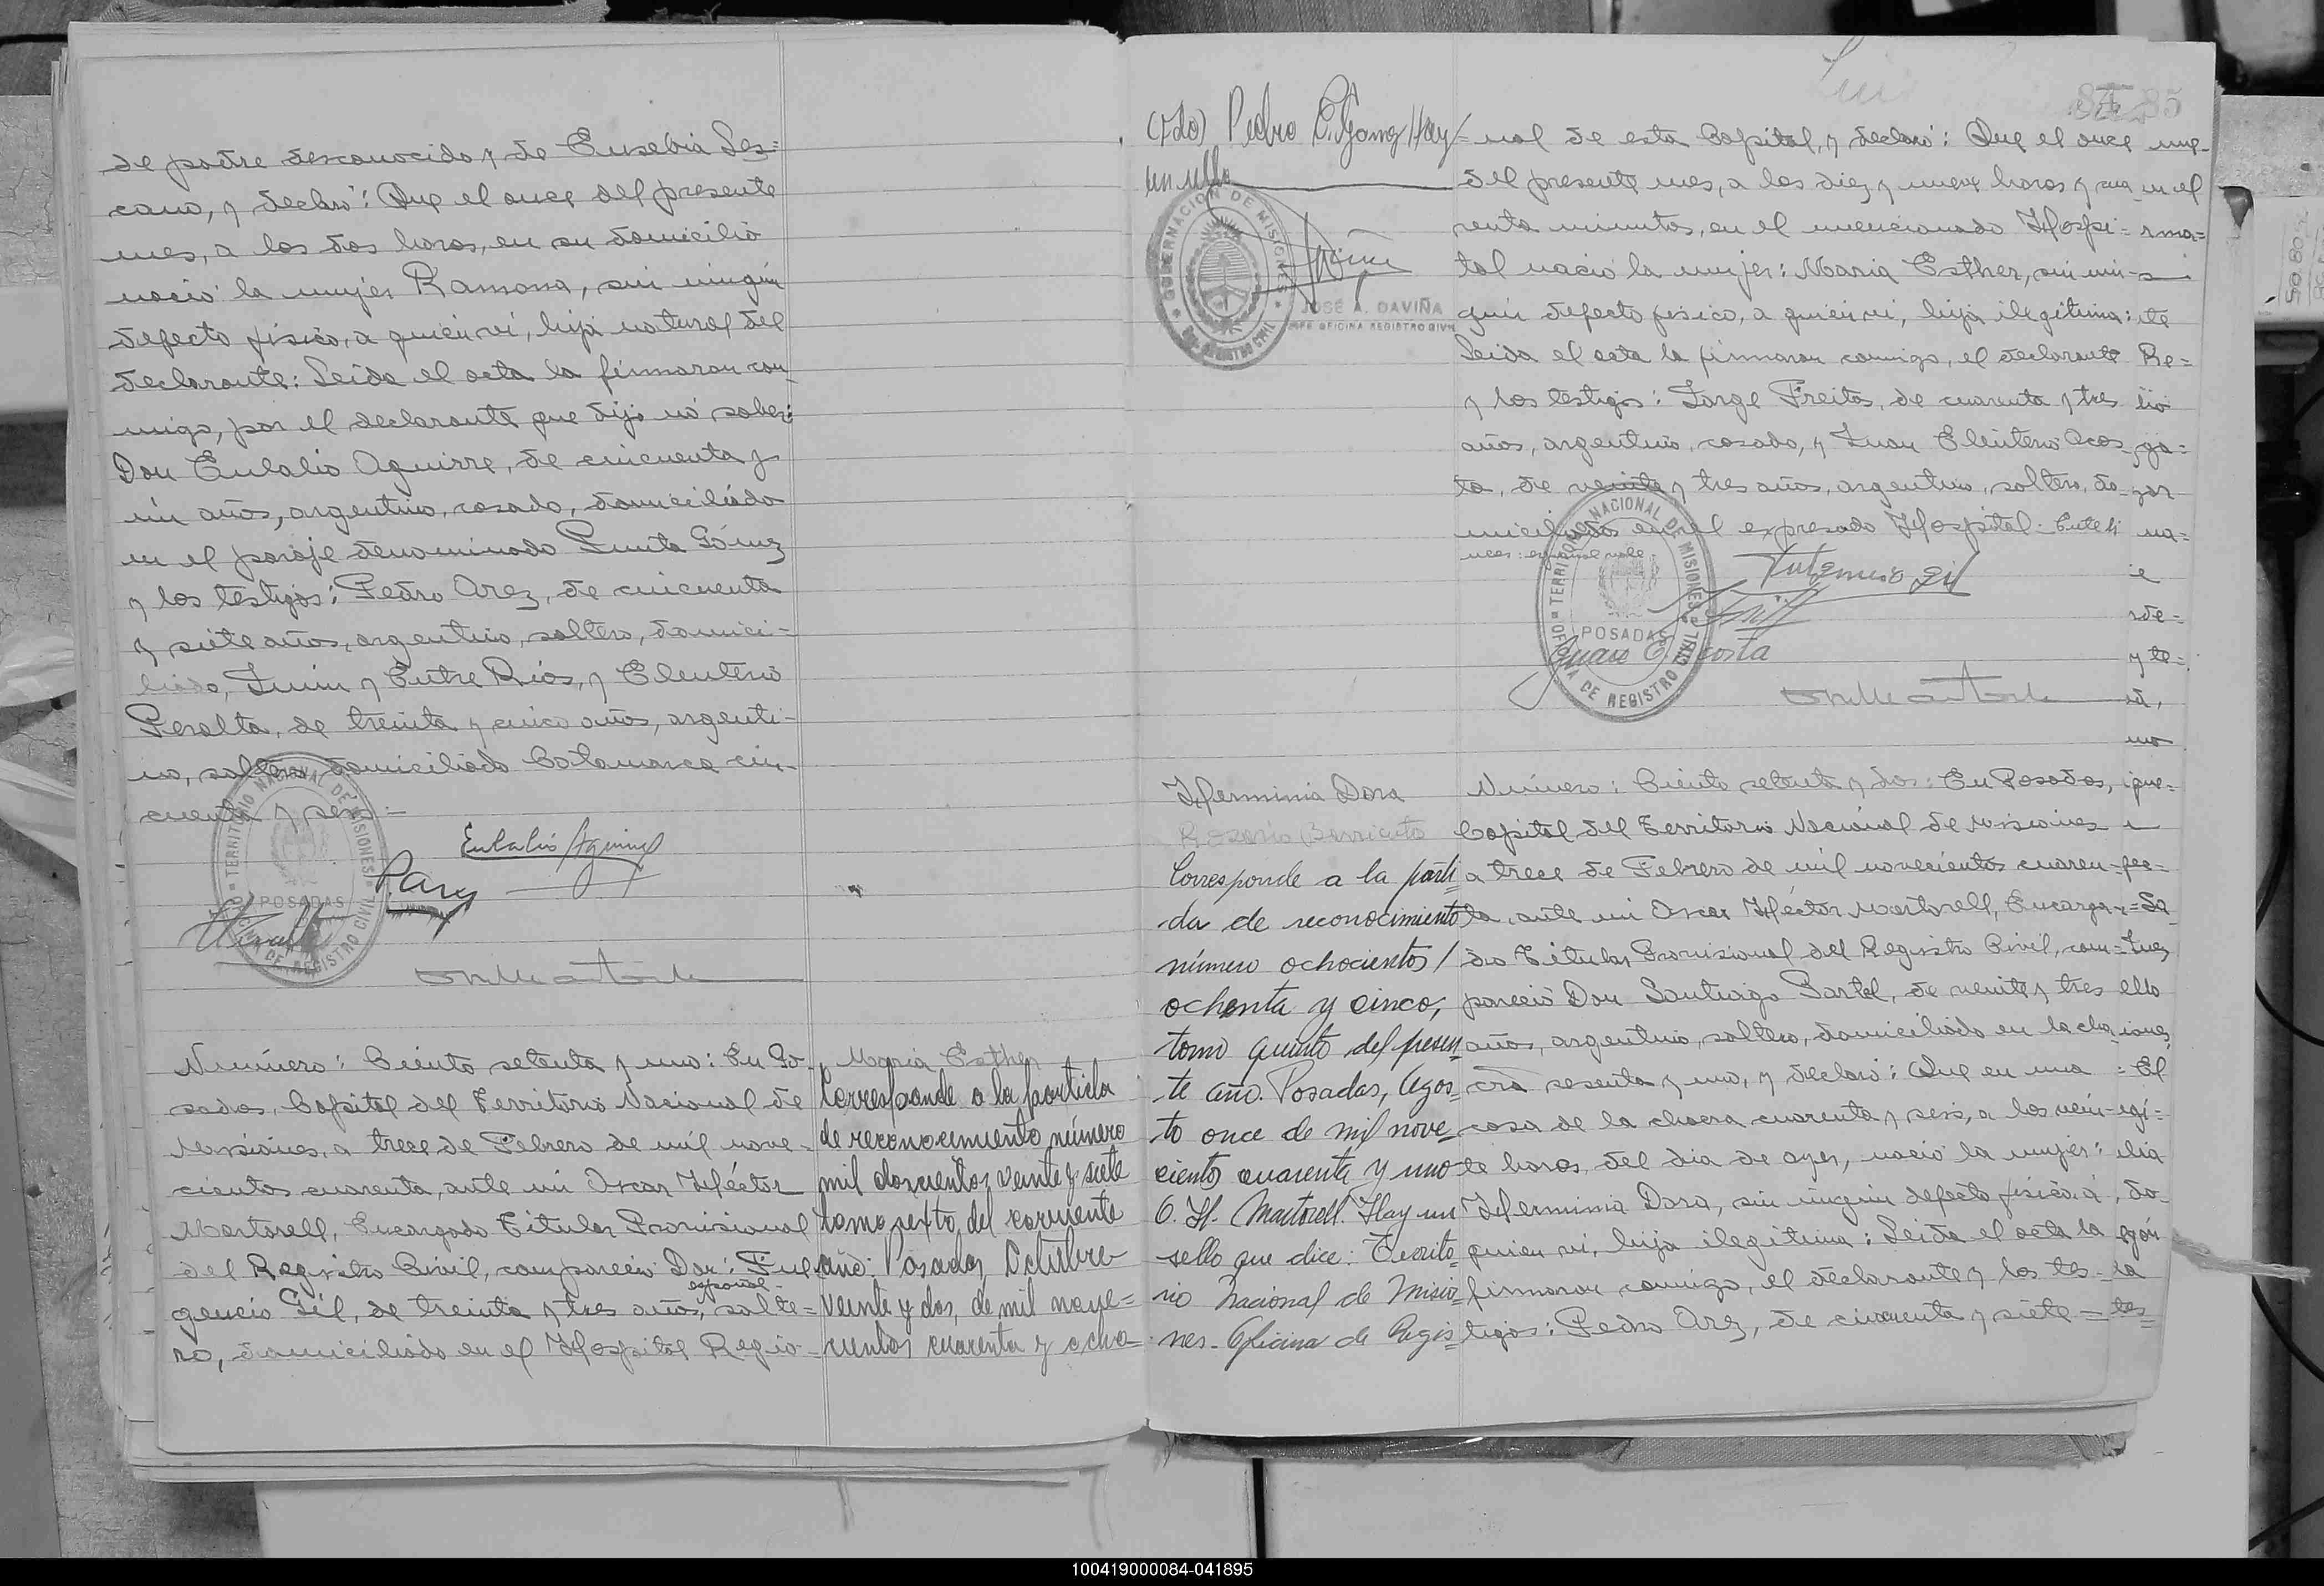 de padre desconocido y de Eusebia Les=
cano, y declaró: Que el once del presente
mes, a las dos horas, en su domicilio
nació la mujer Ramona, sin ningún
defecto físico, a quien ví, hija natural del
declarante: Leida el acta la firmaron con-
migo, por el declarante que dijo no saber:
Don Eulalio Aguirre, de cincuenta y
un años, argentino, casado, domiciliado
en el paraje denominado Punta Gómez
y los testigos: Pedro Arez, de cincuenta
y siete años, argentino, soltero, domici=
liado, Junin y Entre Rios, y Eleuterio
Peralta, de treinta y cinco años, argenti-
no, soltero domiciliado Catamarca cin-
cuenta y seis=
Eulalio Aguirre
P. Arez
TERRITORIO NACIONAL DE MISIONES
POSADAS
OFICINA DE REGISTRO CIVIL
Número: Ciento setenta y uno: En Po-
sadas, Capital del Territorio Nacional de
Misiones, a trece de Febrero de mil nove-
cientos cuarenta, ante mi Oscar Héctor
Martorell, Encargado Titular Provisional
del Registro Civil, compareció Don: Ful
español
gencio Gil, de treinta y tres años, solte=
ro, domiciliado en el Hospital Regio-
Maria Esther
Corresponde a la partida
de reconocimiento número
mil doscientos veinte y siete
tomo sexto, del corriente
año. Posadas, Octubre
veinte y dos, de mil nove=
cientos cuarenta y ocho=
(Fdo) Pedro C. Gomez Hay
un sello
GOBERNACION DE MISIONES
DEL REGISTRO CIVIL
JOSÉ A. DAVIÑA
JEFE OFICINA REGISTRO CIVIL
84 85
nal de esta Capital, y declaró: Que el once
del presente mes, a las diez y nueve horas y cua
renta minutos, en el mencionado Hospi=
tal nació la mujer: Maria Esther, sin nin-
gún defecto físico, a quien ví, hija ilegitima:
Leida el acta la firmaron conmigo, el declarante
y los testigos: Jorge Freitas, de cuarenta y tres
años, argentino, casado, y Juan Eleuterio Acos
ta, de veinte y tres años, argentino, soltero, do-
miciliados en el expresado Hospital- Entre li
neas: español vale-
Fulgencio Gil
Juan E. Acosta
TERRITORIO NACIONAL DE MISIONES
POSADAS
OFICINA DE REGISTRO CIVIL
Herminia Dora
Rosario Barrieto
Corresponde a la parti
da de reconocimiento
número ochocientos/
ochenta y cinco,
tomo quinto del presen
te año. Posadas, Agos=
to once de mil nove
cientos cuarenta y uno
O. H. Martorell. Hay un
sello que dice: Territo
rio Nacional de Misio
nes- Oficina de Regis
Número: Ciento setenta y dos: En Posadas,
Capital del Territorio Nacional de Misiones
a trece de Febrero de mil novecientos cuaren-
ta, ante mi Oscar Héctor Martorell, Encarga-
do Titular Provisional del Registro Civil, com=
pareció Don Santiago Bartel, de veinte y tres
años, argentino, soltero, domiciliado en la cha
cra sesenta y uno, y declaró: Que en una
casa de la chacra cuarenta y seis, a las vein-
te horas, del dia de ayer, nació la mujer:
Herminia Dora, sin ningún defecto físico, a
quien ví, hija ilegitima: Leida el acta la
firmaron conmigo, el declarante y los tes-
tigos: Pedro Arez, de cincuenta y siete=
100419000084-041895